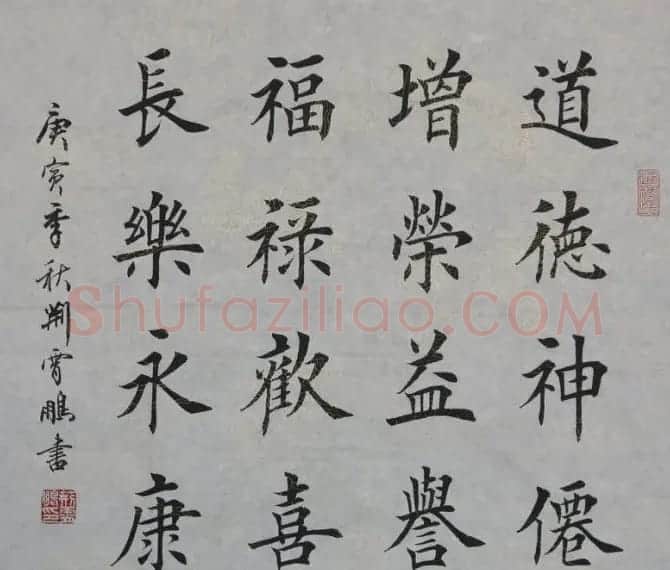 道德神僊
增榮益譽
福禄歡喜
長樂永康
庚寅季秋荆霄鵬书
Shufaziliao.COM